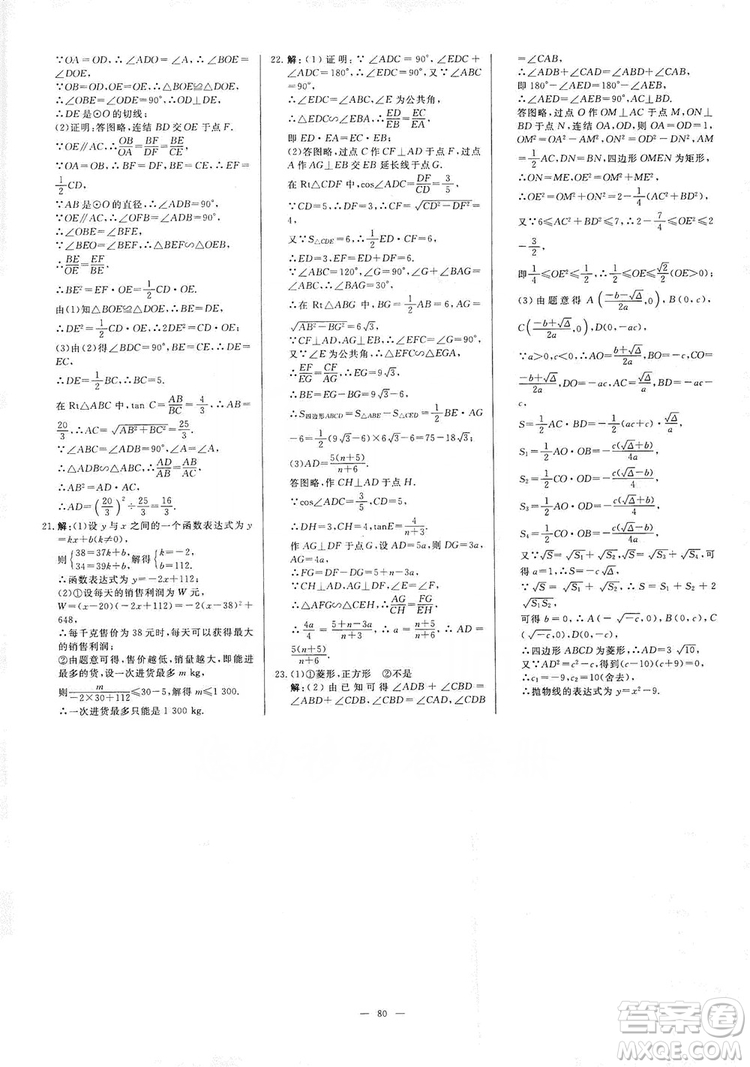 ∵OA=OD,∴∠ADO=∠A,∴∠BOE=
∠DOE,
∵OB=OD,OE=OE,∴△BOE≌△DOE,
∴∠OBE=∠ODE=90°,∴OD⊥DE,
∴DE是⊙O的切线;
(2)证明:答图略,连结 BD 交 OE 于点 F.
∵OE∥AC,∴OB/OA=BF/DF=BE/CE.
∵OA=OB,∴BF=DF,BE=CE,∴EF=
1/2CD,
∵AB 是⊙O 的直径,∴∠ADB=90°,
∴∠OBE=∠OFB=∠BFE,
∵∠BEO=∠BEF,∴△BEF∽△OEB,
∴BE/OE=EF/BE,
∴BE²=EF·OE=1/2CD·OE.
由(1)知△BOE≌△DOE,∴DE=BE,
∴DE²=1/2CD·OE,∴2DE²=CD·OE;
(3)由(2)得∠BDC=90°,BE=CE,∴DE=
EC,
∴DE=1/2BC,∴BC=5.
在 Rt△ABC 中,tan C=AB/BC=4/3,∴AB=
20/3,∴AC=√(AB²+BC²)=25/3.
∵∠ADB=∠ABC=90°,∠A=∠A,
∴△ADB∽△ABC,∴AD/AB=AB/AC,
∴AB²=AD·AC,
∴AD=(20/3)²÷25/3=16/3.
21.解:(1)设 y 与 x 之间的一个函数表达式为 y
=kx+b(k≠0),
则{38=37k+b,34=39k+b,解得{k=-2,b=112,
∴函数表达式为 y=-2x+112;
(2)①设每天的销售利润为 W 元,
W=(x-20)(-2x+112)=-2(x-38)²+
648,
∴每千克售价为 38 元时,每天可以获得最大
的销售利润;
②由题意可得,售价越低,销量越大,即能进最
多的货,设一次进货最多 m kg,
则m/(-2×30+112)≤30-5,解得 m≤1 300,
∴一次进货最多只能是 1 300 kg.
22.解:(1)证明:∵∠ADC=90°,∠EDC+
∠ADC=180°,∴∠EDC=90°,又∵∠ABC
=90°,
∴∠EDC=∠ABC,∠E为公共角,
∴△EDC∽△EBA,∴ED/EB=EC/EA,
即 ED·EA=EC·EB;
(2)答图略,过点 C 作 CF⊥AD 于点 F,过点
A 作 AG⊥EB 交 EB 延长线于点 G.
在 Rt△CDF 中,cos∠ADC=DF/CD=3/5,
∵CD=5,∴DF=3,∴CF=√(CD²-DF²)=
4,
又∵S△CDE=6,∴1/2ED·CF=6,
∴ED=3,EF=ED+DF=6.
∵∠ABC=120°,∠G=90°,∠G+∠BAG
=∠ABC,∴∠BAG=30°,
∴在 Rt△ABG 中,BG=1/2AB=6,AG=
√(AB²-BG²)=6√3,
∵CF⊥AD,AG⊥EB,∴∠EFC=∠G=90°,
又∵∠E 为公共角,∴△EFC∽△EGA,
∴EF/EG=CF/AG,∴EG=9√3,
∴BE=EG-BG=9√3-6,
∴S四边形ABCD=S△ABE-S△CED=1/2BE·AG
-6=1/2(9√3-6)×6√3-6=75-18√3;
(3)AD=5(n+5)/(n+6).
答图略,作 CH⊥AD 于点 H.
∵cos∠ADC=3/5,
∴DH=3,CH=4,tanE=4/(n+3),
作 AG⊥DF 于点 G,设 AD=5a,则 DG=3a,
AG=4a,
∴FG=DF-DG=5+n-3a,
∵CH⊥AD,AG⊥DF,∠E=∠F,
∴△AFG∽△CEH,∴AG/CH=FG/EH,
∴4a/4=(5+n-3a)/(n+3),∴a=(n+5)/(n+6),∴AD=5a=
5(n+5)/(n+6).
23.(1)①菱形,正方形 ②不是
解:(2)由已知可得∠ADB+∠CBD=
∠ABD+∠CDB,∠CBD=∠CAD,∠CDB
=∠CAB,
∴∠ADB+∠CAD=∠ABD+∠CAB,
即 180°-∠AED=180°-∠AEB,
∴∠AED=∠AEB=90°,AC⊥BD.
答图略,过点 O 作 OM⊥AC 于点 M,ON⊥
BD 于点 N,连结 OA,OD,∴OA=OD=1,
OM²=OA²-AM²,ON²=OD²-DN²,AM
=1/2AC,DN=1/2BD,四边形 OMEN 为矩形,
∴ON=ME,OE²=OM²+ME²,
∴OE²=OM²+ON²=2-1/4(AC²+BD²).
又∵6≤AC²+BD²≤7,∴2-7/4≤OE²≤2-
3/2,
即1/4≤OE²≤1/2,∴1/2≤OE≤√2/2;
(3)由题意得 A((-b-√Δ)/2a,0),B(0,c),
C((-b+√Δ)/2a,0),D(0,-ac),
∵a>0,c<0,∴AO=(b+√Δ)/2a,BO=-c,CO=
(-b+√Δ)/2a,DO=-ac,AC=√Δ/a,BD=-ac-c,
S=1/2AC·BD=-1/2(ac+c)·√Δ/a,
S₁=1/2AO·OB=-c(√Δ+b)/4a,
S₂=1/2CO·OD=-c(√Δ-b)/4,
S₃=1/2AO·OD=-c(√Δ+b)/4,
S₄=1/2CO·OB=-c(√Δ-b)/4a.
又∵√S=√S₁+√S₂,√S=√S₃+√S₄,可
得 a=1.
∴S=-c√Δ,S₁=S₃,S₂=S₄.
∵√S=√S₁+√S₂,∴S=S₁+S₂+2
√(S₁S₂),
可得 b=0,∴A(-√-c,0),B(0,c),C
(√-c,0),D(0,-c),
∴四边形 ABCD 为菱形,∴4AD=12√10,
又∵AD²=c²-c,∴c²-c=90,得到(c+9)(c-10)=0,
∴c₁=-9,c₂=10(舍去),
∴抛物线的表达式为 y=x²-9.
— 80 —
答案圈
MXQE.COM